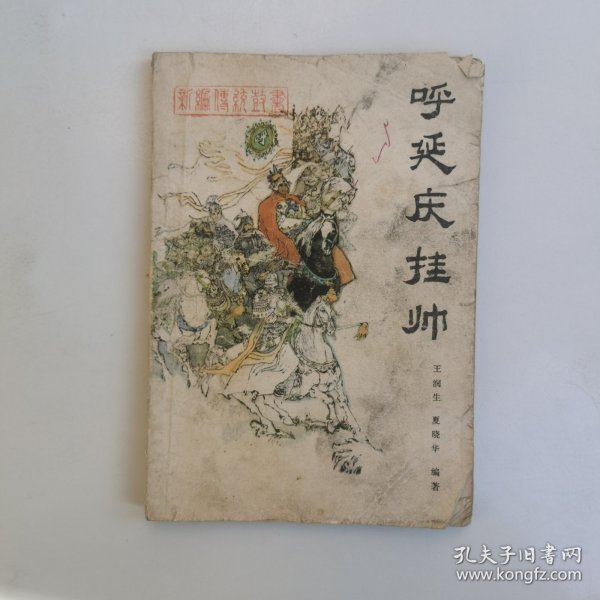 新編傳統鼓書
呼延庆挂帅
王润生 夏晓华 编著
孔夫子旧书网
www.kongfz.com